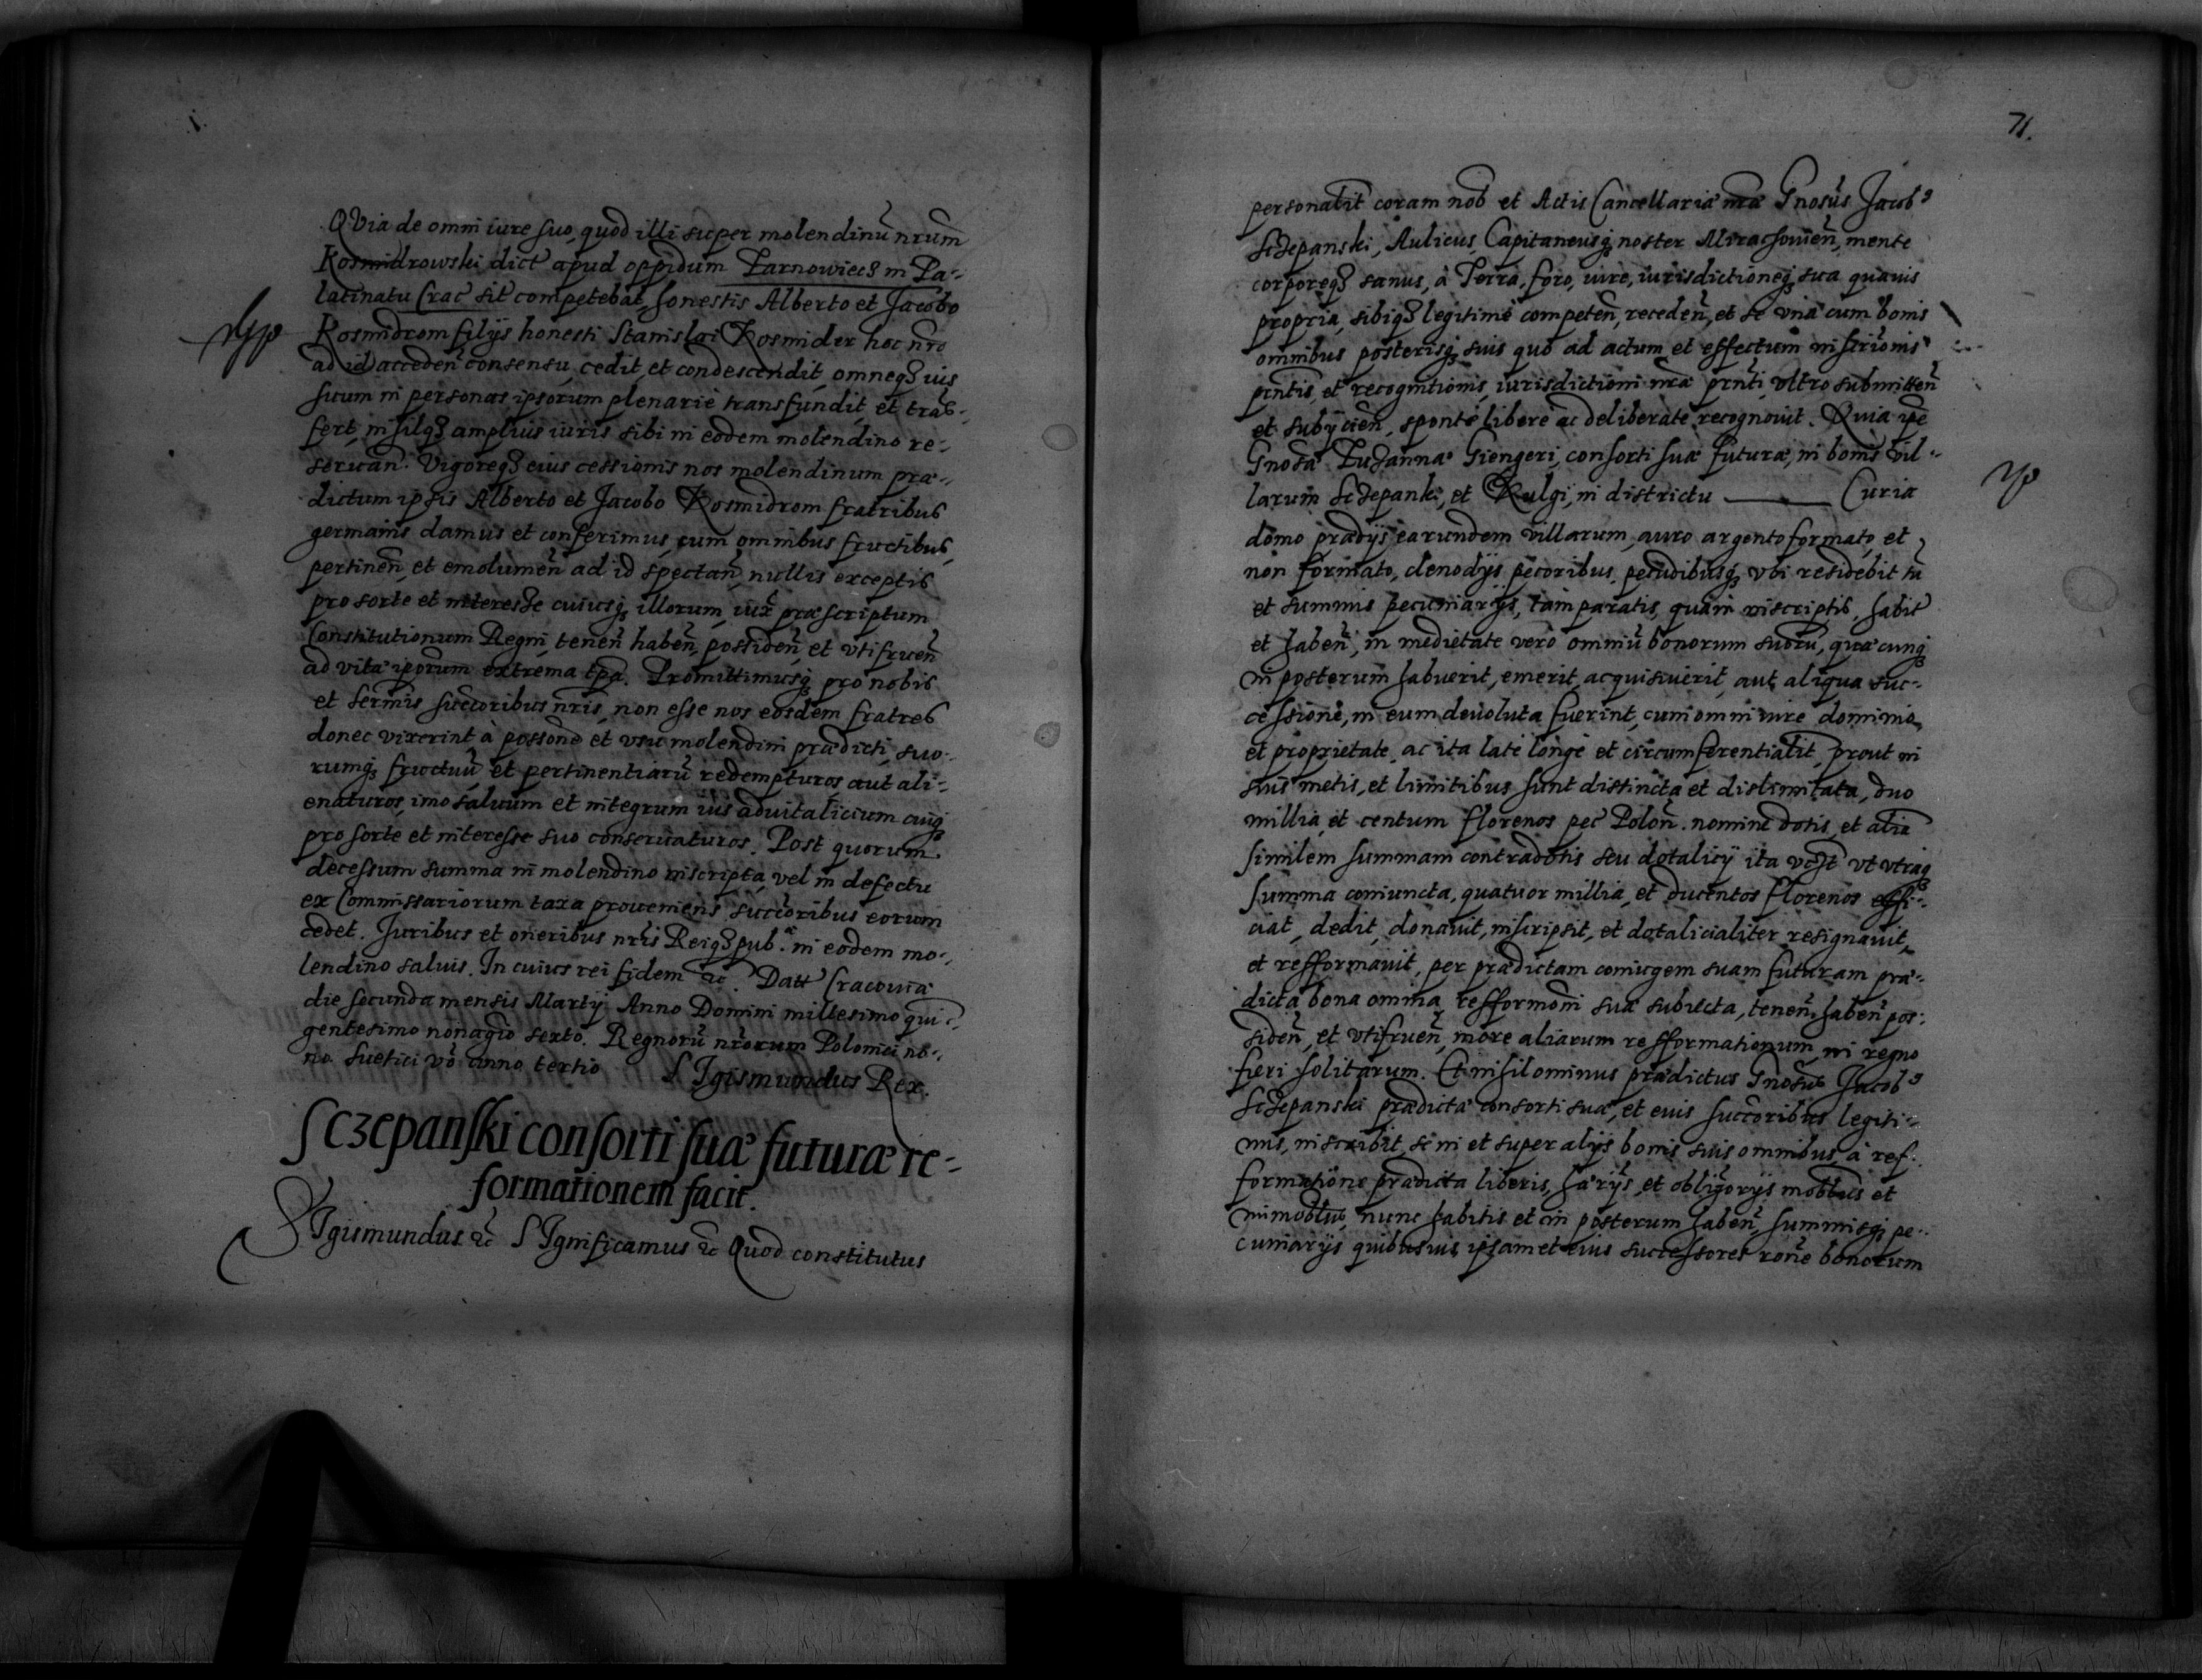 Quia de omni iure suo, quod illi super molendinū nrūm
Kosmidrowski dict apud oppidum Tarnowiecz in Pa-
latinatu Crac sit competebat, honestis Alberto et Jacobo
Kosmidrom filijs honesti Stanislai Kosmider hoc nrō
ad id acceden̄ consensu, cedit, et condescendit, omneqз ius
suum in personas ipsorum plenarie transfundit, et trās-
fert, nihilqз amplius iuris sibi in eodem molendino re-
seruan̄. Vigoreqз eius cessionis nos molendinum præ-
dictum ipsis Alberto et Jacobo Kosmidrom fratribus
germanis damus et conferimus, cum omnibus fructibus,
pertinen̄, et emolumen̄ ad id spectan̄, nullis exceptis
pro sorte et interesse cuiusqз illorum, iux̄ præscriptum
Constitutionum Regni, tenen̄ haben̄, possiden̄, et vtifruen̄
ad vitæ ipōrum extrema tp̄a. Promittimusqз pro nobis
et sermis succoribus nr̄is, non esse nos eosdem fratres
donec vixerint à possōne et vsu molendini prædicti, suo-
rumqз fructuū et pertinentiarū redempturos, aut ali-
enaturos, imo saluum et integrum ius aduitalicium cuiqз
pro sorte et interesse suo conseruaturos. Post quorum
decessum summa in molendino inscripta, vel in defectu
ex Commissariorum taxa proueniens succoribus eorum
cedet. Juribus et oneribus nr̄is Reiqз pub. in eodem mo-
lendino saluis. In cuius rei fidem &c. Datt Cracouiæ
die secunda mensis Martij Anno Domini millesimo quin-
gentesimo nonagīo sexto. Regnorū nrōrum Polonici no-
no Suetici vō anno tertio SIgismundus Rex.
Sczepanski consorti suæ futuræ re-
formationem facit.
SIgismundus &c SIgnificamus &c Quod constitutus
71.
personalit coram nob et Actis Cancellariæ nrǣ Gnosus Jacobꝰ
Sczepanski, Aulicus Capitaneusqз noster Mirachouien̄, mente
corporeqз sanus, à Terra, foro, iure, iurisdictioneqз sua quauis
propria, sibiqз legitime competen̄, receden̄, et se vnà cum bonis
omnibus posterisqз suis quo ad actum et effectum inscrīonis
pn̄tis, et recognitionis, iurisdictioni nrǣ prn̄ti vltro submitten̄
et subijcien̄, sponte libere ac deliberate recognouit. Quia ipe
Gnosæ Zuzannæ Giengeri, consorti suæ futuræ, in bonis vil-
larum Sczepanki, et Kulgi, in districtu ——— Curia
domo prædijs earundem villarum, auro argento formato, et
non formato, clenodijs pecoribus, pecudibusqз vbi residebit tū
et summis pecuniarijs, tam paratis, quam inscriptis, habit
et haben̄, in medietate vero omniū bonorum suorū, quæcunqз
in posterum habuerit, emerit, acquisiuerit, aut aliqua suc-
cessione, in eum deuoluta fuerint, cum omni iure dominio,
et proprietate, ac ita late longe et circumferentialit, prout in
suis metis, et limitibus sunt distincta et dislimitata, duo
millia, et centum florenos pec Polon̄. nomine dotis, et aliā
similem summam contradotis seu dotalicij ita vcz̄t vt vtraqз
summa coniuncta, quatuor millia, et ducentos florenos effi-
ciat, dedit, donauit, inscripsit, et dotalicialiter resignauit,
et refformauit, per prædictam coniugem suam futuram præ-
dicta bona omnia, refformōni suæ subiecta, tenen̄. haben̄ pos-
siden̄, et vtifruen̄, more aliarum refformationum, in regno
fieri solitarum. Et nihilominus prædictus Gnosus Jacobꝰ
Sczepanski prædictæ consorti suæ, et euis succoribus legiti-
mis, inscribit, se in et super alijs bonis suis omnibus, à ref-
formatione prædicta liberis, hærijs, et obligorijs moblbus et
immoblbus, nunc habitis et in posterum haben̄, summisqз pe-
cuniarijs quibusuis, ipsam et eius successores rōne bonorum